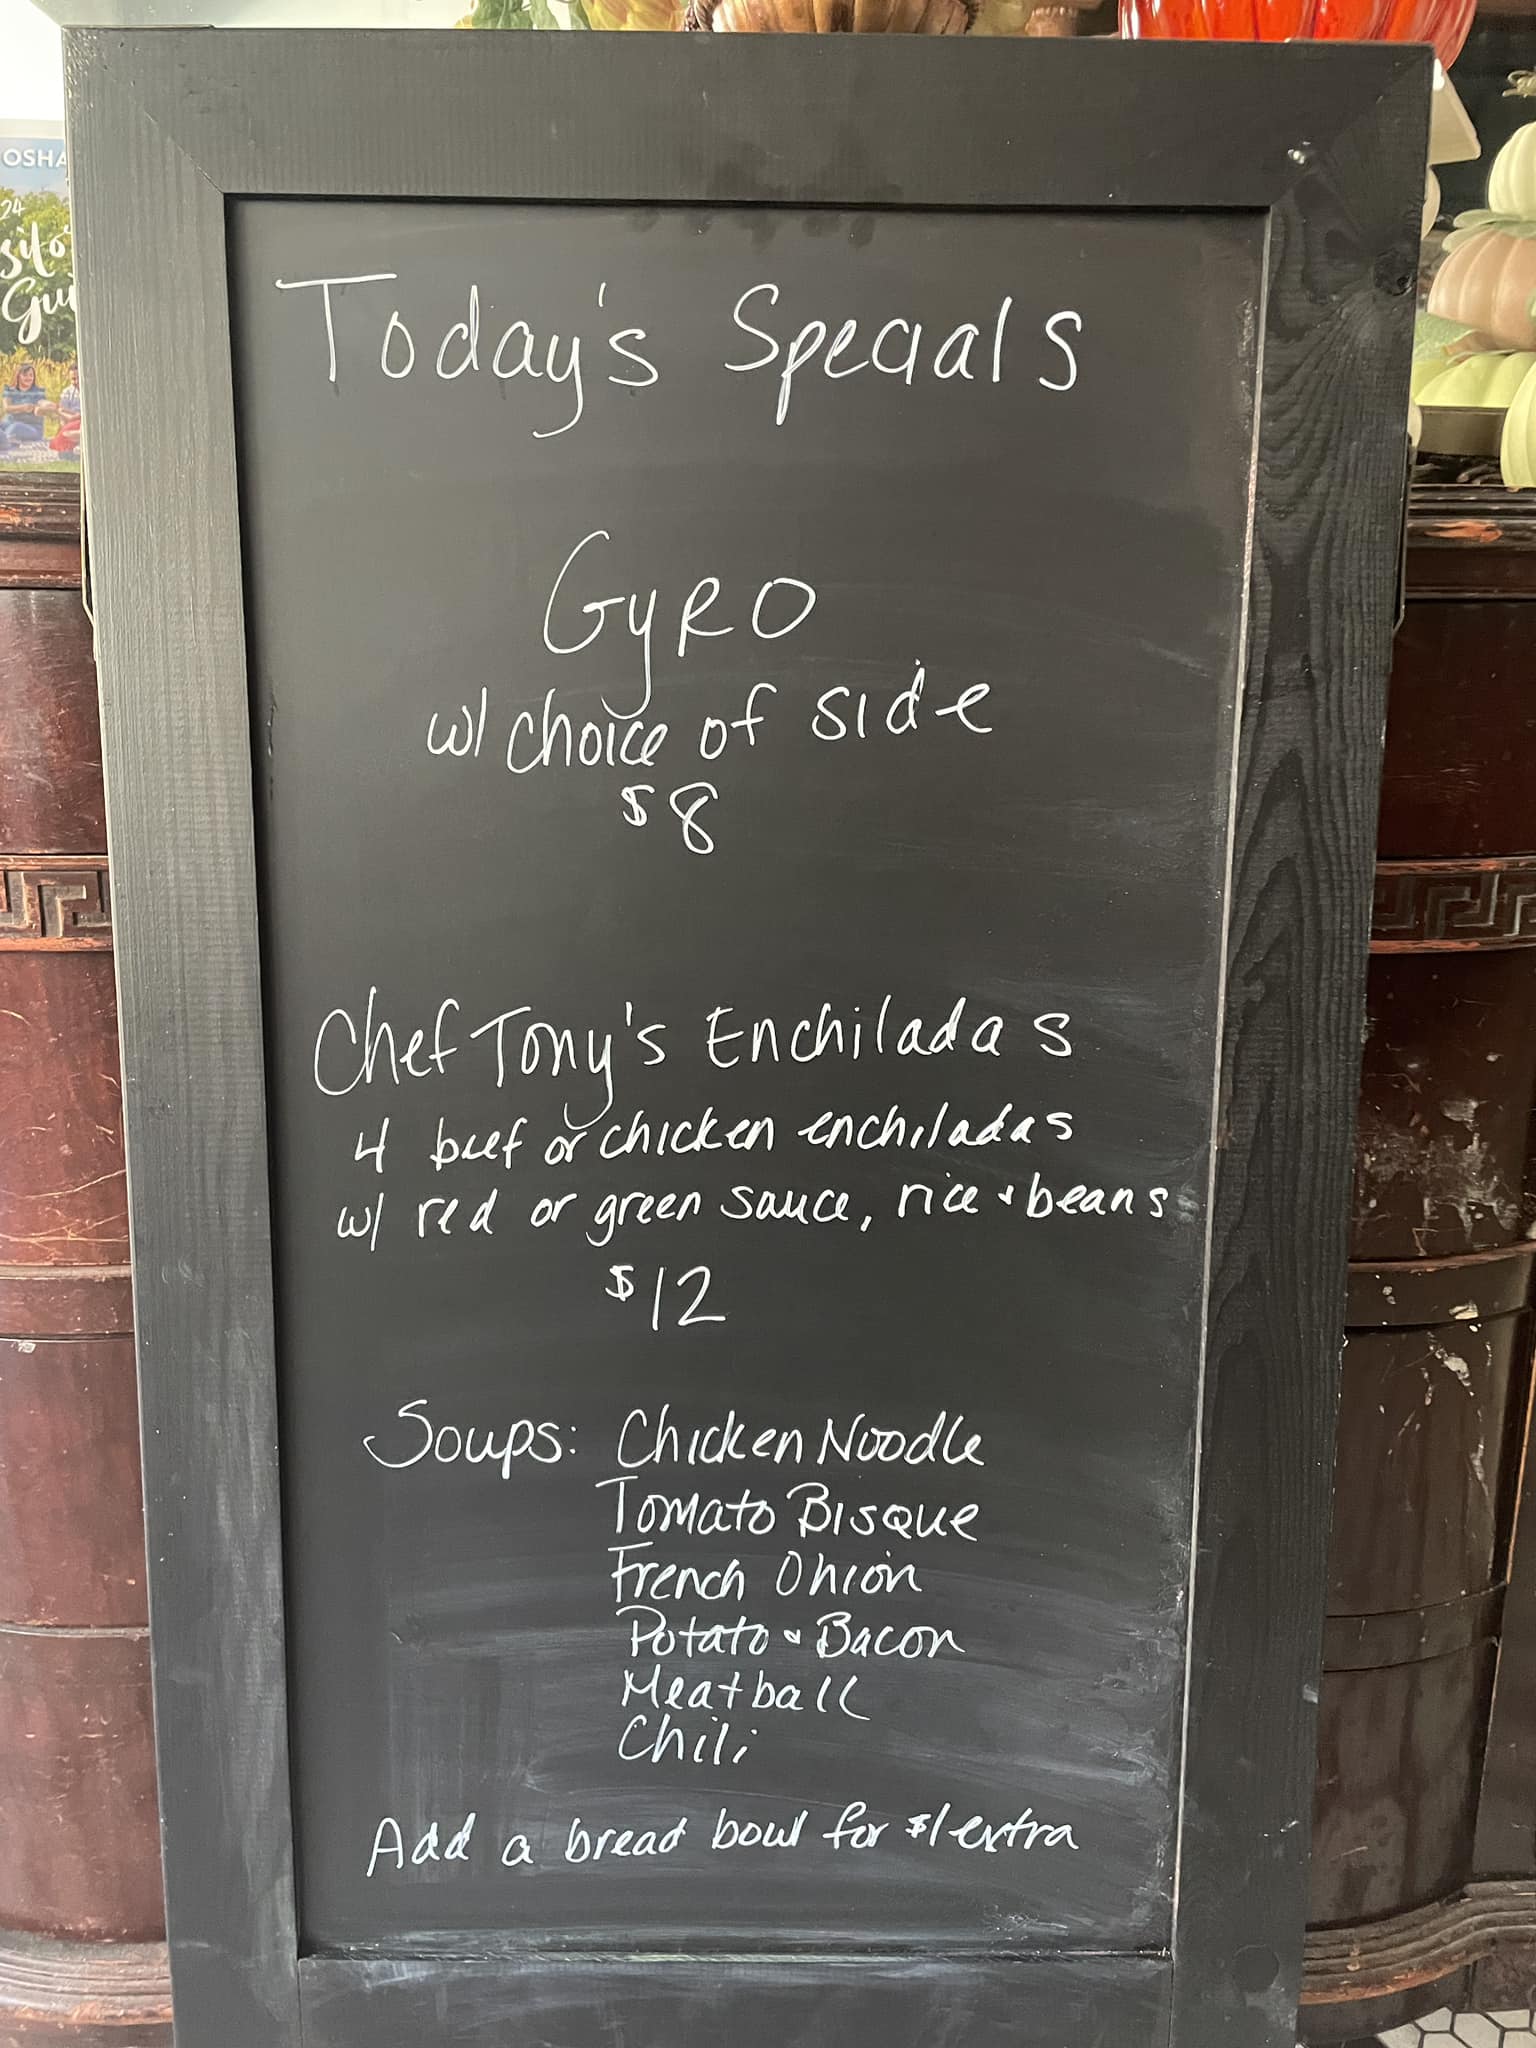 OSHA
24
Today's Specials
GYRO
w/ choice of side
$8
Chef Tony's Enchiladas
4 beef or chicken enchiladas
w/ red or green sauce, rice & beans
$12
Soups: Chicken Noodle
Tomato Bisque
French Onion
Potato & Bacon
Meatball
Chili
Add a bread bowl for $1 extra